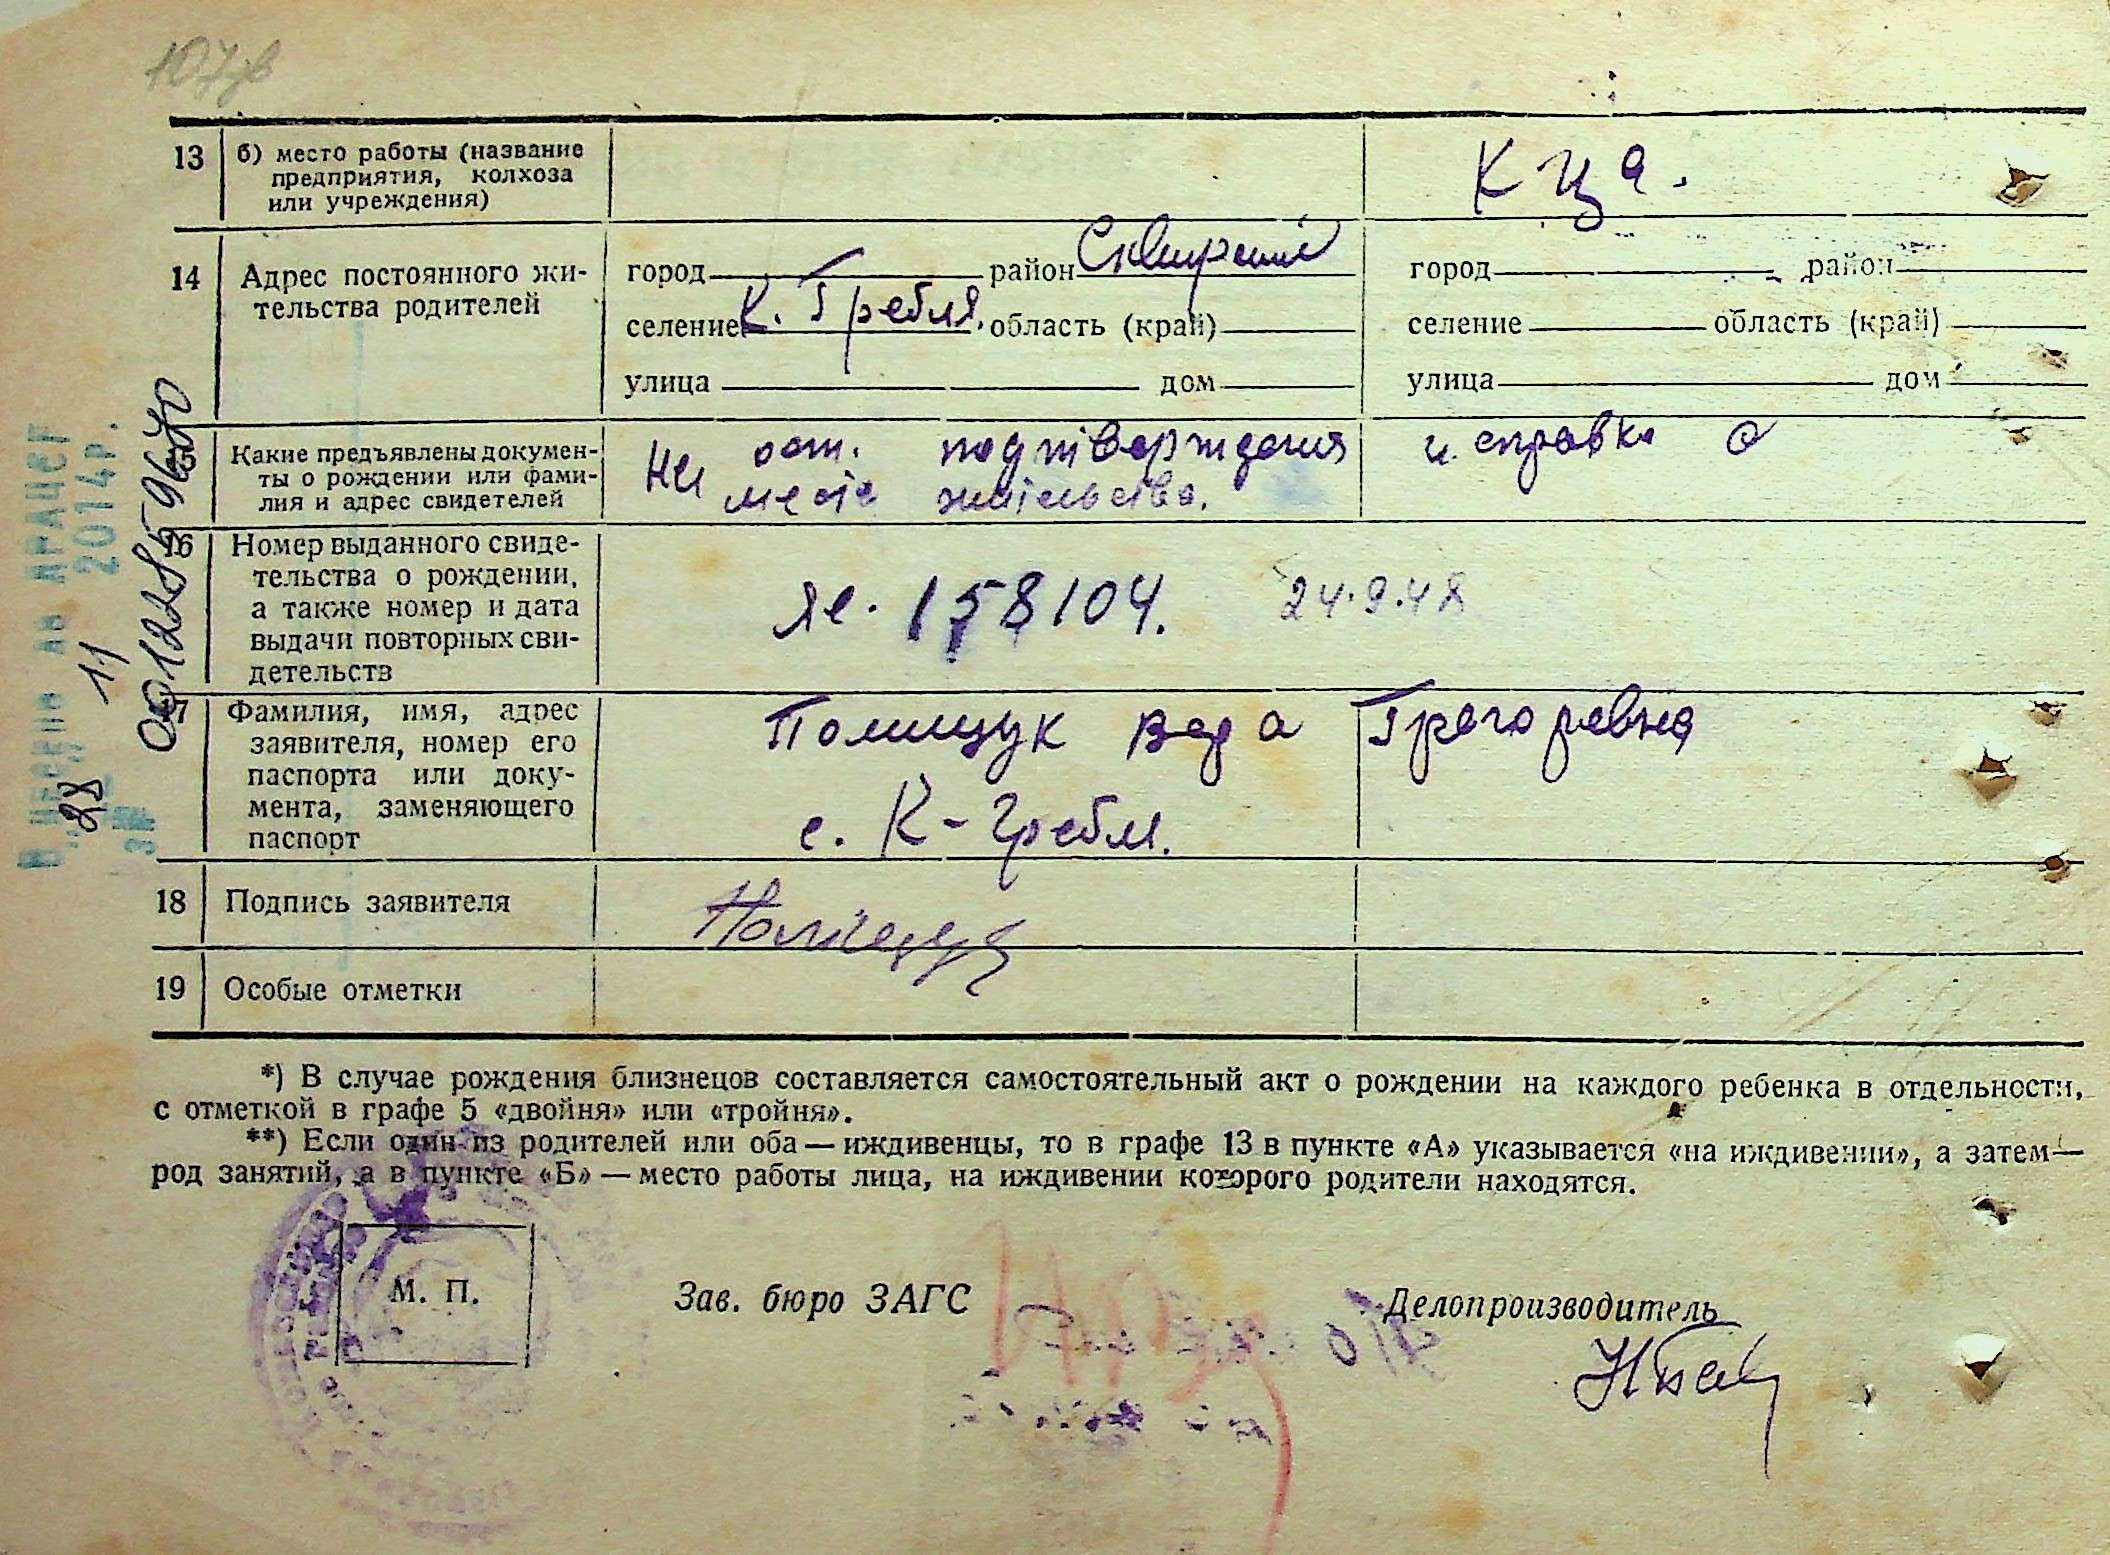 13 б) место работы (название
предприятия, колхоза
или учреждения)
14 Адрес постоянного жи-
тельства родителей
город район Сквирский
селение К. Гребля. область (край)
улица дом
город район
селение область (край)
улица дом
Какие предъявлены докумен-
ты о рождении или фами-
лия и адрес свидетелей
подтверждения и справка о
места жительства.
16 Номер выданного свиде-
тельства о рождении,
а также номер и дата
выдачи повторных сви-
детельств
158104. 24.9.48
Фамилия, имя, адрес
заявителя, номер его
паспорта или доку-
мента, заменяющего
паспорт
Полищук Григоревна
с. К-Гребл.
18 Подпись заявителя
19 Особые отметки
*) В случае рождения близнецов составляется самостоятельный акт о рождении на каждого ребенка в отдельности,
с отметкой в графе 5 «двойня» или «тройня».
**) Если один из родителей или оба — иждивенцы, то в графе 13 в пункте «А» указывается «на иждивении», а затем —
род занятий, а в пункте «Б» — место работы лица, на иждивении которого родители находятся.
М. П.
Зав. бюро ЗАГС
Делопроизводитель
00122859670
28 11 2014р.